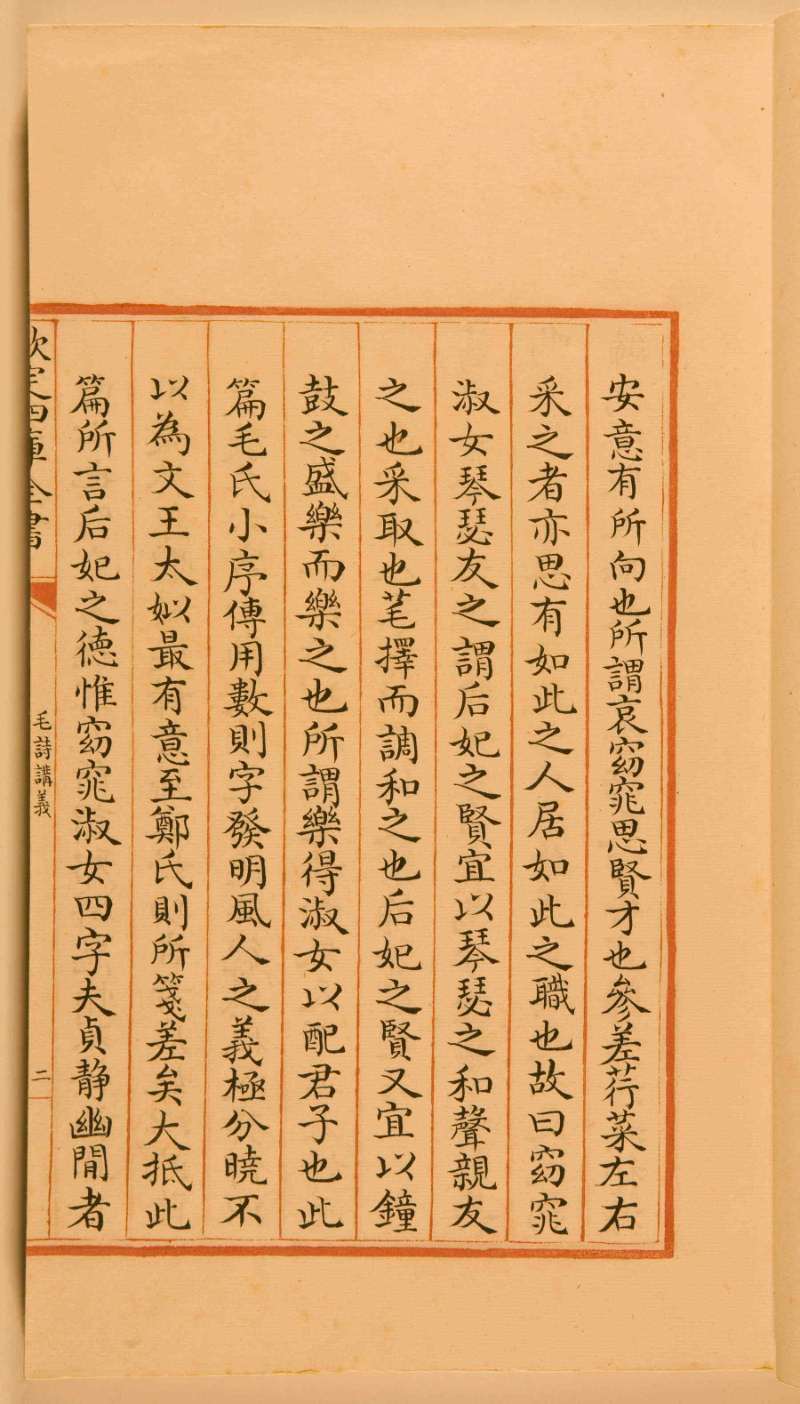 安意有所向也所謂哀窈窕思賢才也參差荇菜左右
采之者亦思有如此之人居如此之職也故曰窈窕
淑女琴瑟友之謂后妃之賢宜以琴瑟之和聲親友
之也采取也芼擇而調和之也后妃之賢又宜以鐘
鼓之盛樂而樂之也所謂樂得淑女以配君子也此
篇毛氏小序傳用數則字發明風人之義極分曉不
以為文王太姒最有意至鄭氏則所箋差矣大抵此
篇所言后妃之德惟窈窕淑女四字夫貞静幽閒者
欽定四庫全書
毛詩講義
二